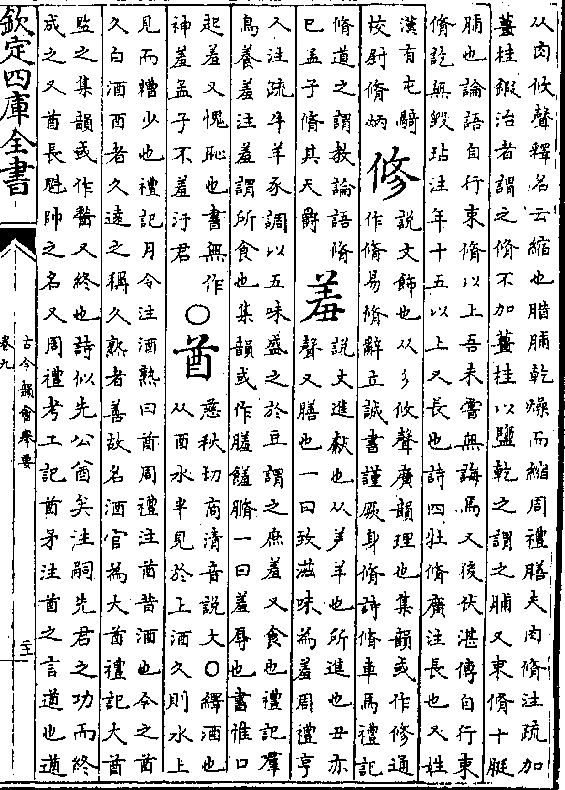 从肉攸聲釋名云縮也腊脯乾燥而縮周禮膳夫肉脩注疏加
薑桂鍜治者謂之脩不加薑桂以鹽乾之謂之脯又束脩十脡
脯也論語自行束脩以上吾未嘗無誨焉又後伏湛傳自行束
脩訖無毁玷注年十五以上又長也詩四牡脩廣注長也又姓
漢有屯騎
校尉脩炳
修
說文飾也从彡攸聲廣韻理也集韻或作修通
作脩易脩辭立誠書謹厥身脩詩脩車馬禮記
脩道之謂教論語脩
已孟子脩其天爵
羞
說文進獻也从羊羊也所進也丑亦
聲又膳也一曰致滋味為羞周禮亨
人注疏牛羊豕調以五味盛之於豆謂之庶羞又食也禮記羣
鳥養羞注羞謂所食也集韻或作饈一曰羞辱也書惟口
起羞又愧恥也書無作
神羞孟子不羞汙君
○酋
慈秋切商清音說文○繹酒也
从酉水半見於上酒久則水上
見而糟少也禮記月令注酒熟曰酋周禮注酋昔酒也今之酋
久白酒酉者久遠之稱久熟者善故名酒官為大酋禮記大酋
監之集韻或作又終也詩似先公酋矣注嗣先君之功而終
成之又酋長魁帥之名又周禮考工記酋矛注酋之言遒也遒
欽定四庫全書
古今韻會舉要
卷九